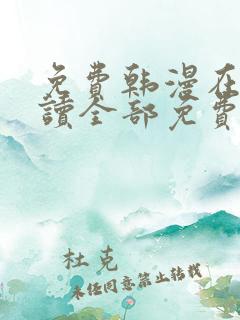 免费韩漫在
讀全部免费
杜克
未经同意禁止转载